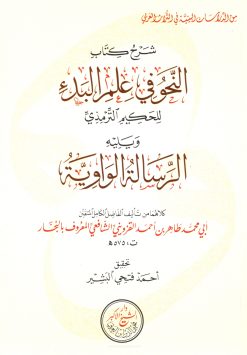 شرح كتاب
النحو في علم البدء
للحكيم الترمذي
ويليه
الرسالة الواوية
كلاهما من تأليف الفاضل الكامل المتقن
أبي محمد طاهر بن أحمد القزويني الشافعي المعروف بالنجار
ت ٥٧٥هـ
تحقيق
أحمد فتحي البشير